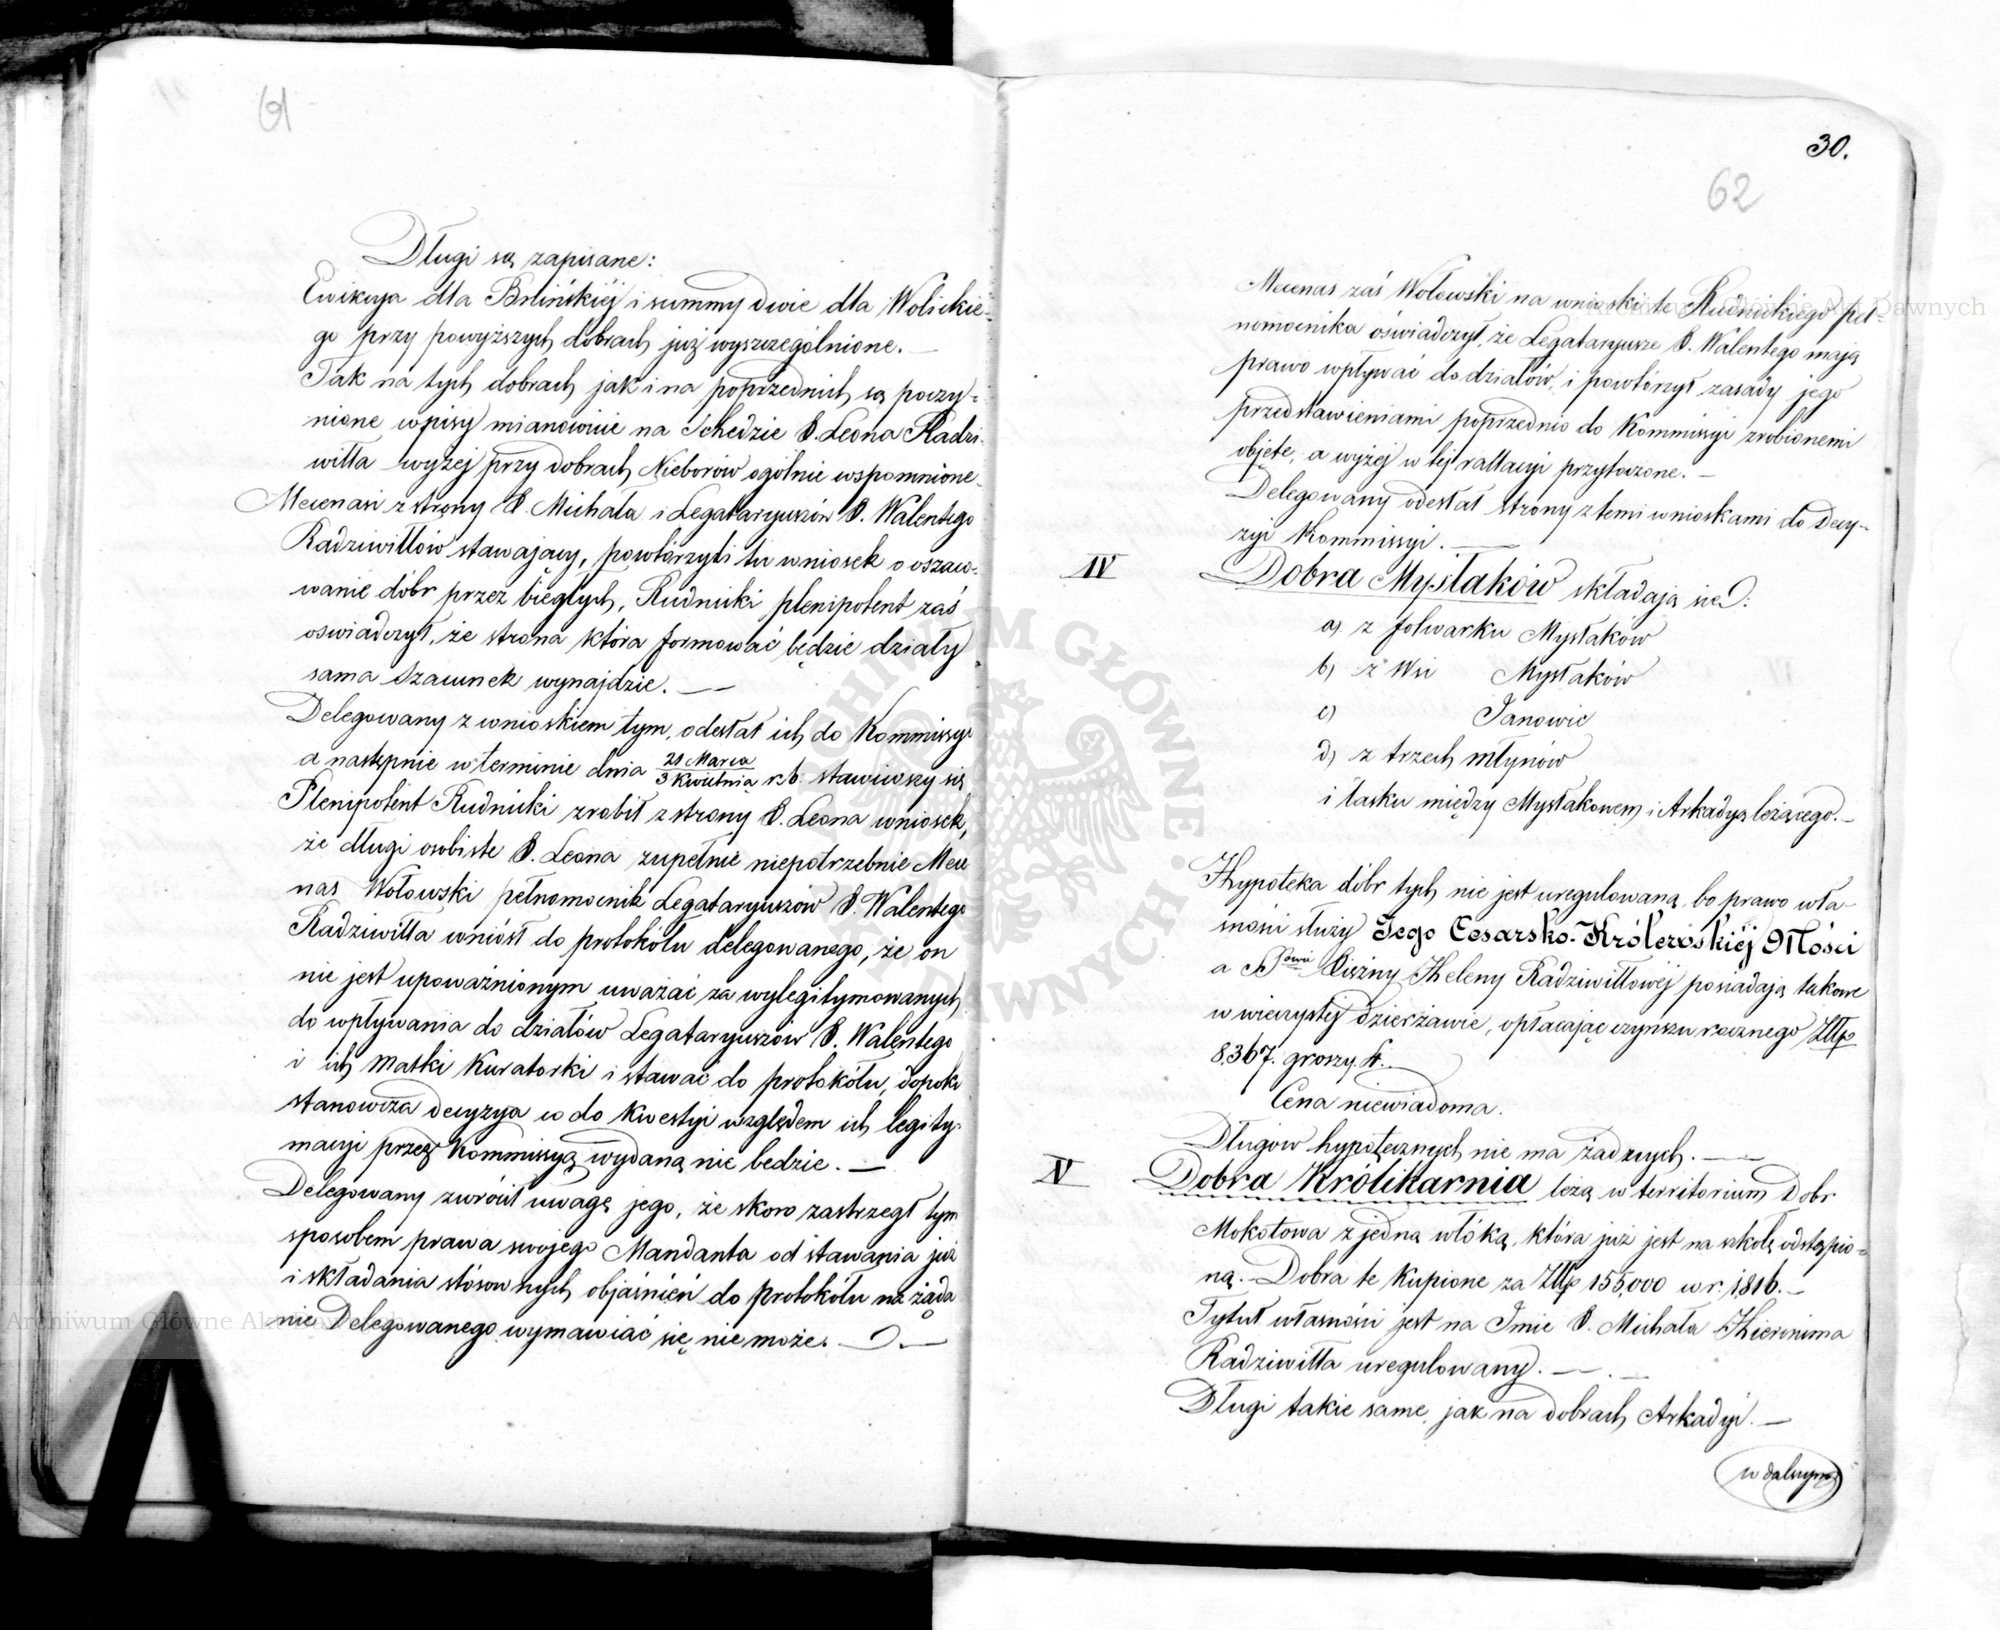 61
Długi są zapisane:
Ewikcya dla Bilińskiéj i summy dwie dla Wolickie-
go przy powyższych dobrach już wyszczególnione. —
Tak na tych dobrach jak i na poprzednich są poczy-
nione wpisy mianowicie na Schedzie X. Leona Radzi-
wiłła wyżej przy dobrach Nieborów ogólnie wspomnione.
Mecenasi z strony X. Michała i Legataryuszów X. Walentego
Radziwiłłów stawający, powtórzyli tu wniosek o oszaco-
wanie dóbr przez biegłych, Rudnicki plenipotent zaś
oświadczył, że strona która formować będzie działy
sama szacunek wynajdzie. —
Delegowany z wnioskiem tym, odesłał ich do Kommissyi
a następnie w terminie dnia 21 Marca / 3 Kwietnia r. b. stawiwszy się
Plenipotent Rudnicki zrobił z strony X. Leona wniosek,
że długi osobiste X. Leona zupełnie niepotrzebnie Mece
nas Wołowski pełnomocnik Legataryuszów X. Walentego
Radziwiłła wniósł do protokółu delegowanego, że on
nie jest upoważnionym uważać za wylegitymowanych
do wpływania do działów Legataryuszów X. Walentego
i ich Matki Kuratorki i stawać do protokółu, dopoki
stanowcza decyzya co do kwestyi względem ich legity-
macyi przez Kommissyą wydaną nie bedzie. —
Delegowany zwrócił uwagę jego, że skoro zastrzegł tym
sposobem prawa swojego Mandanta od stawania już
i składania stósownych objaśnień do protokółu na żąda
nie Delegowanego wymawiać się nie może. —
30.
62
Mecenas zaś Wołowski na wnioski te Rudnickiego peł-
nomocnika oświadczył, że Legataryusze X. Walentego mają
prawo wpływać do działów, i powtórzył zasady jego
przedstawieniami poprzednio do Kommissyi zrobionemi
objęte, a wyżéj w téj rallacyi przytoczone. —
Delegowany odesłał strony z temi wnioskami do Decy-
zyi Kommissyi. —
IV Dobra Mysłaków składają się:
a) z folwarku Mysłaków
b) z Wsi Mysłaków
c) Janowic
d) z trzech młynów
i lasku między Mysłakowem i Arkadyą leżącego. —
Hypoteka dóbr tych nie jest uregulowaną, bo prawo wła-
sności służy Jego Cesarsko-Królewskiéj Mości
a Sswie Xiężny Heleny Radziwiłłowéj posiadają takowe
w wieczystéj dzierżawie, opłacając czynszu rocznego Złp
8,367. groszy 4. —
Cena niewiadoma.
Długów hypotecznych nie ma żadnych. —
V Dobra Królikarnia leżą w territorium Dobr
Mokotowa z jedną włóką, która już jest na szkołę odstąpio-
ną. — Dobra te kupione za Złp 155,000 w r. 1816. —
Tytuł własności jest na Imie X. Michała Hieronima
Radziwiłła uregulowany. —
Długi takie same, jak na dobrach Arkadyi. —
ARCHIWUM GŁÓWNE AKT DAWNYCH
Archiwum Główne Akt Dawnych
Archiwum Główne Akt Dawnych